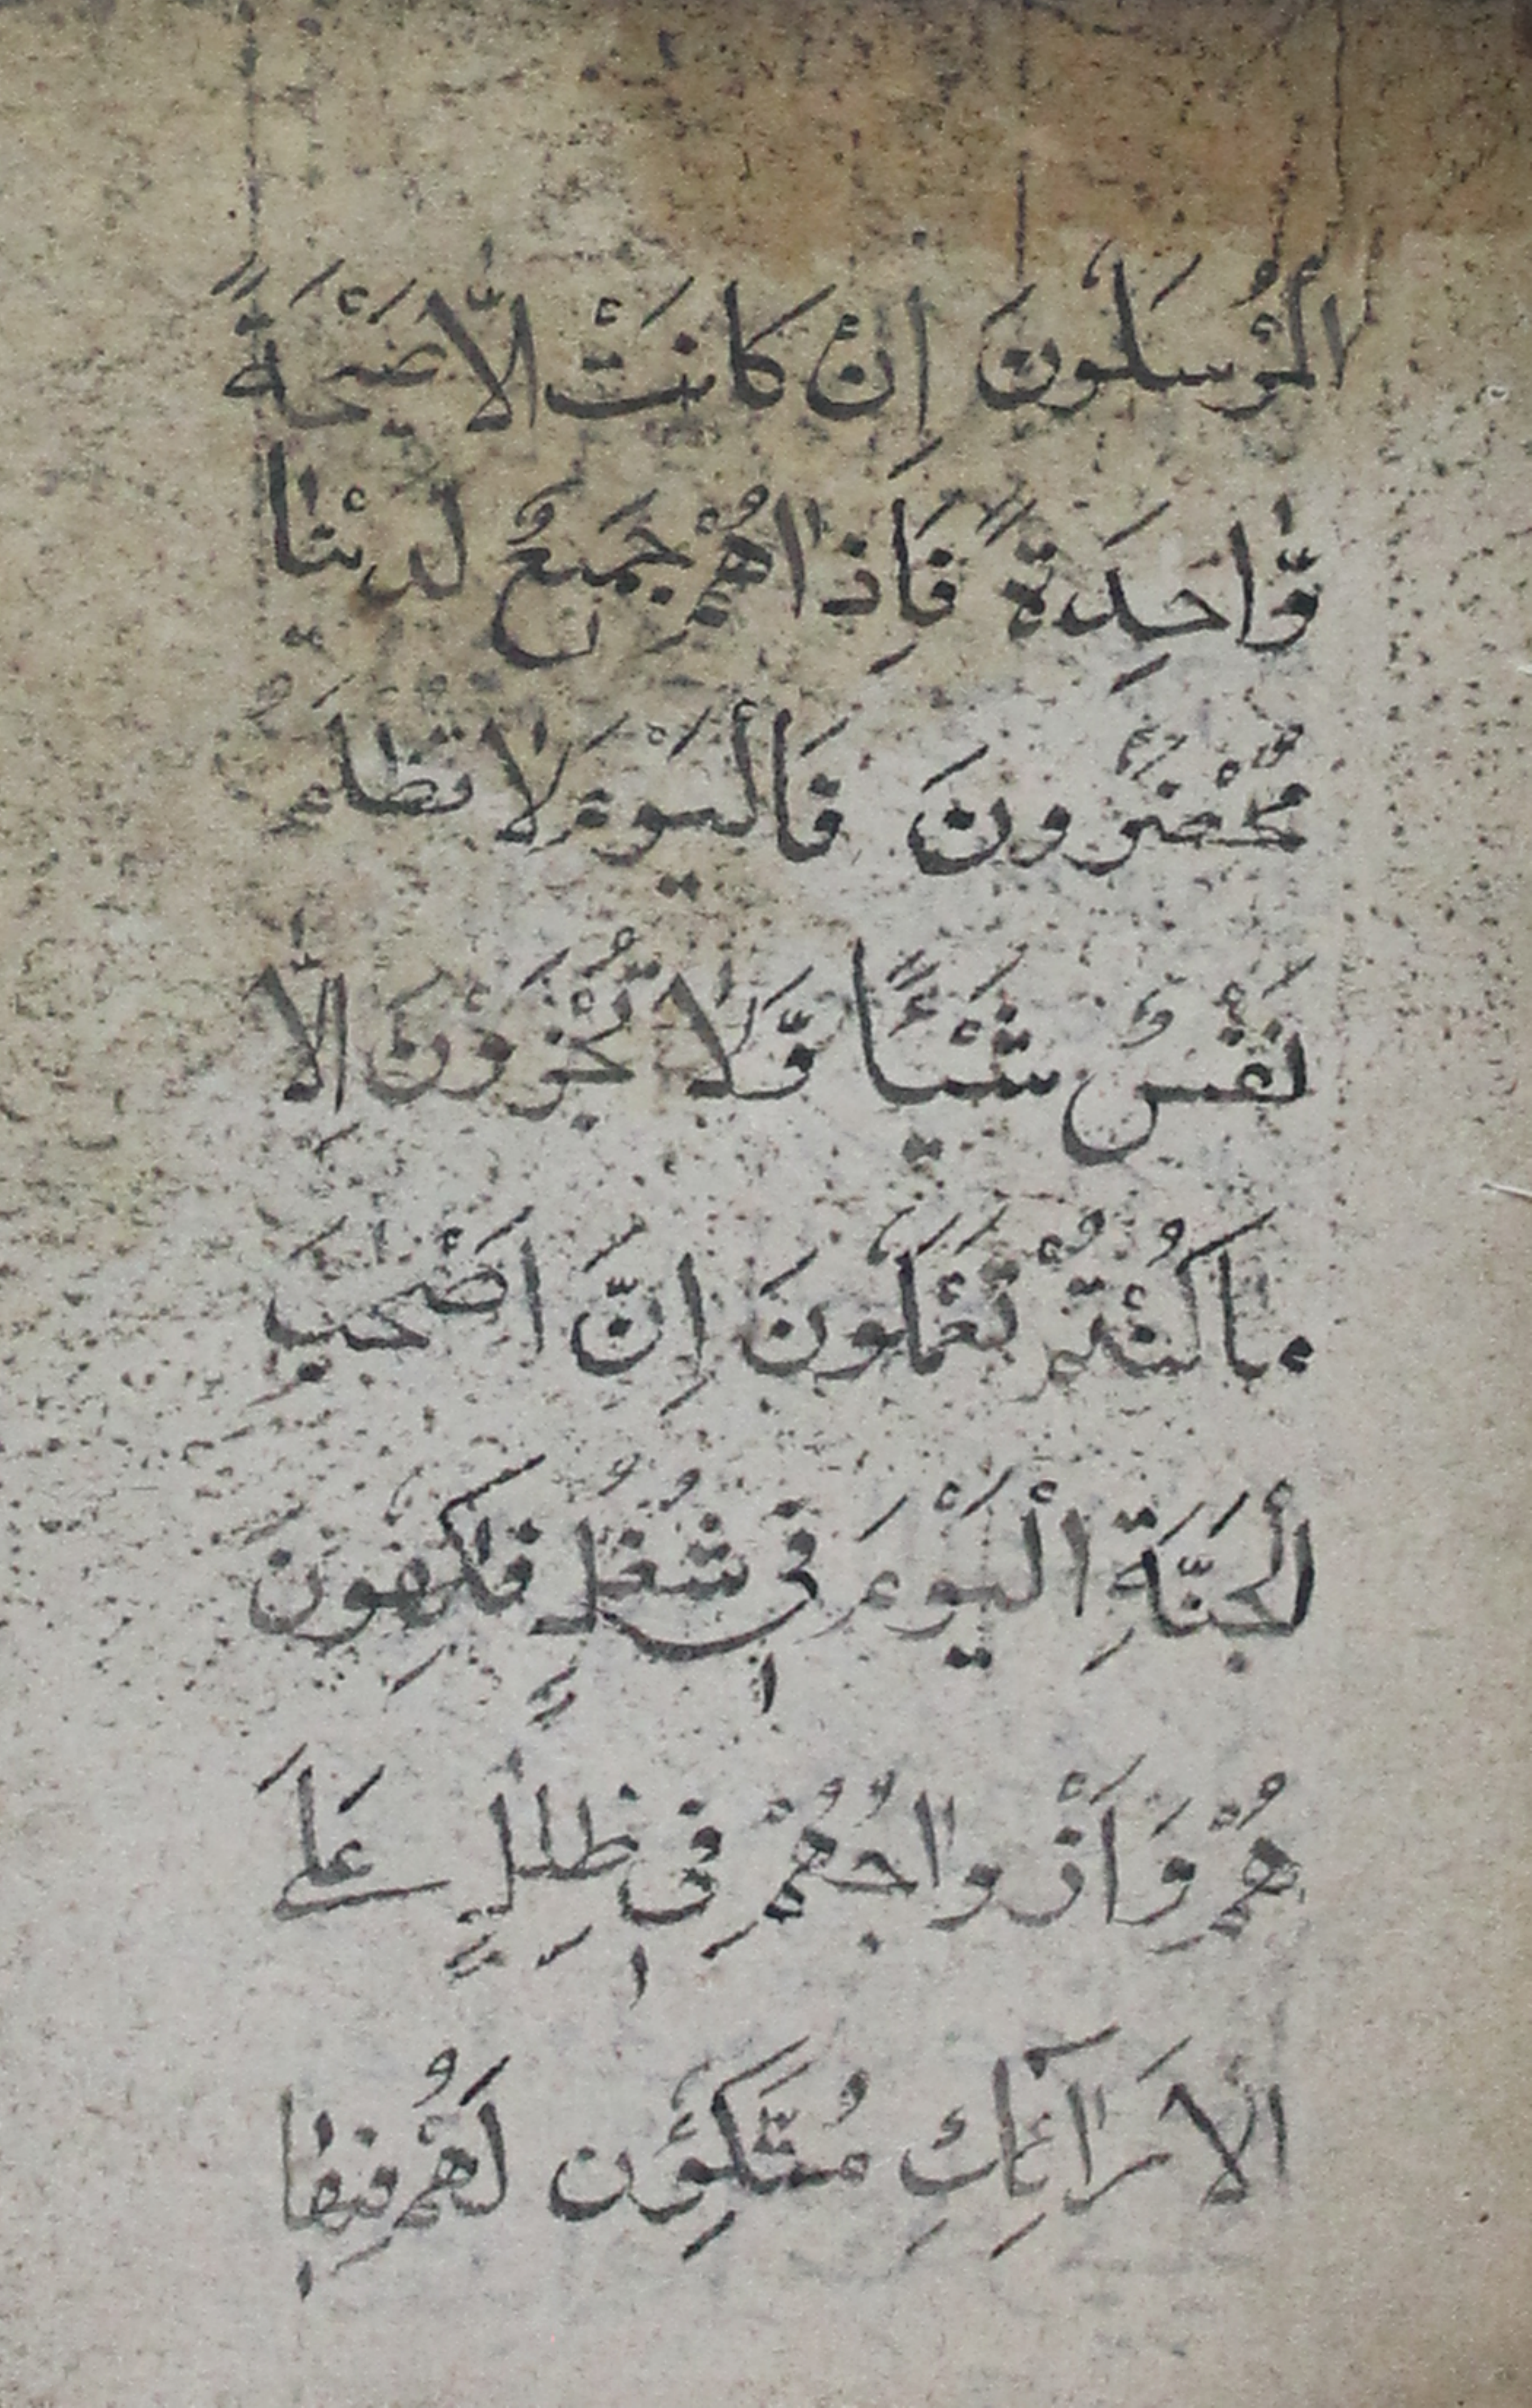 الْمُرْسَلُوْنَ اِنْ كَانَتْ اِلَّا صَيْحَةً
وَّاحِدَةً فَاِذَا هُمْ جَمِيْعٌ لَدَيْنَا
مُحْضَرُوْنَ فَالْيَوْمَ لَا تُظْلَمُ
نَفْسٌ شَيْـًٔا وَّلَا تُجْزَوْنَ اِلَّا
مَا كُنْتُمْ تَعْمَلُوْنَ اِنَّ اَصْحٰبَ
الْجَنَّةِ الْيَوْمَ فِيْ شُغُلٍ فٰكِهُوْنَ
هُمْ وَاَزْوَاجُهُمْ فِيْ ظِلٰلٍ عَلَى
الْاَرَآئِكِ مُتَّكِـُٔوْنَ لَهُمْ فِيْهَا